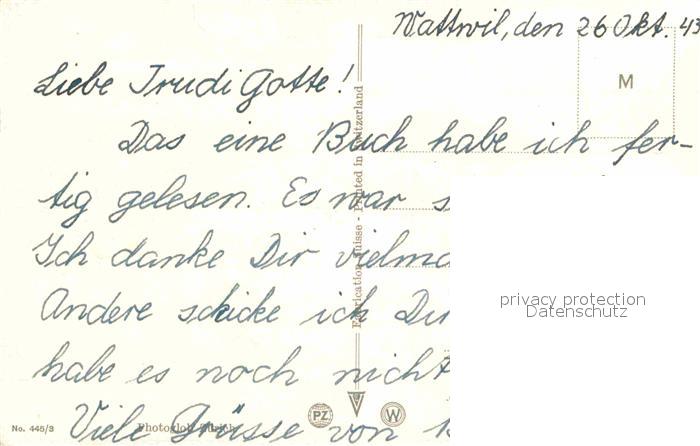 Wattwil, den 26 Okt. 43
Liebe Trudi Gotte!
M
Das eine Buch habe ich fer-
tig gelesen. Es war s
Ich danke Dir vielma
Andere schicke ich Dir
habe es noch nicht
Viele Grüsse von
Fabrication Suisse - Printed in Switzerland
privacy protection
Datenschutz
No. 445/3
Photoglob Zürich
PZ
W